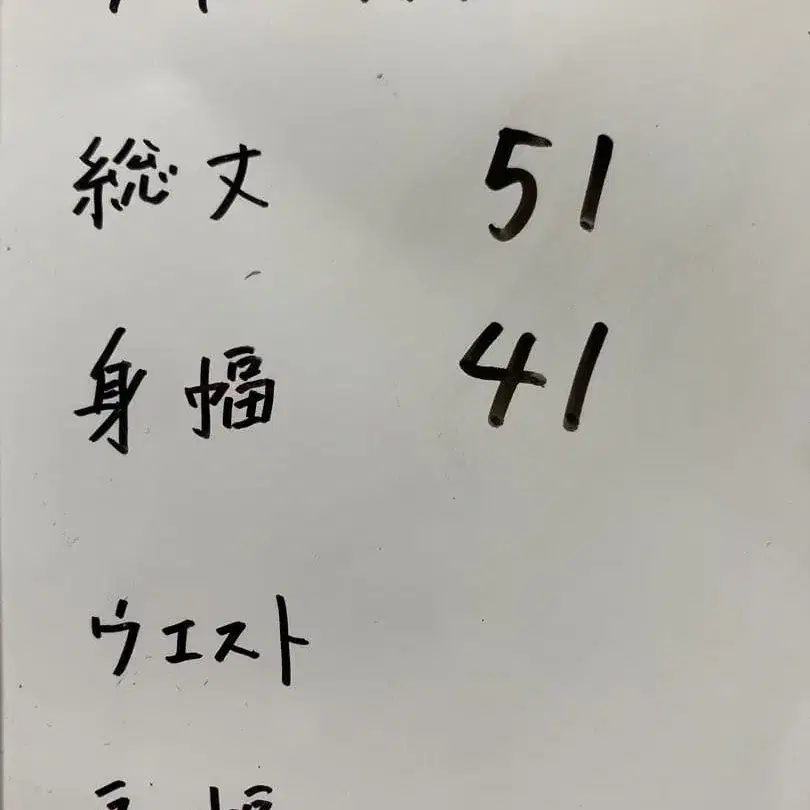 総丈 51
身幅 41
ウエスト